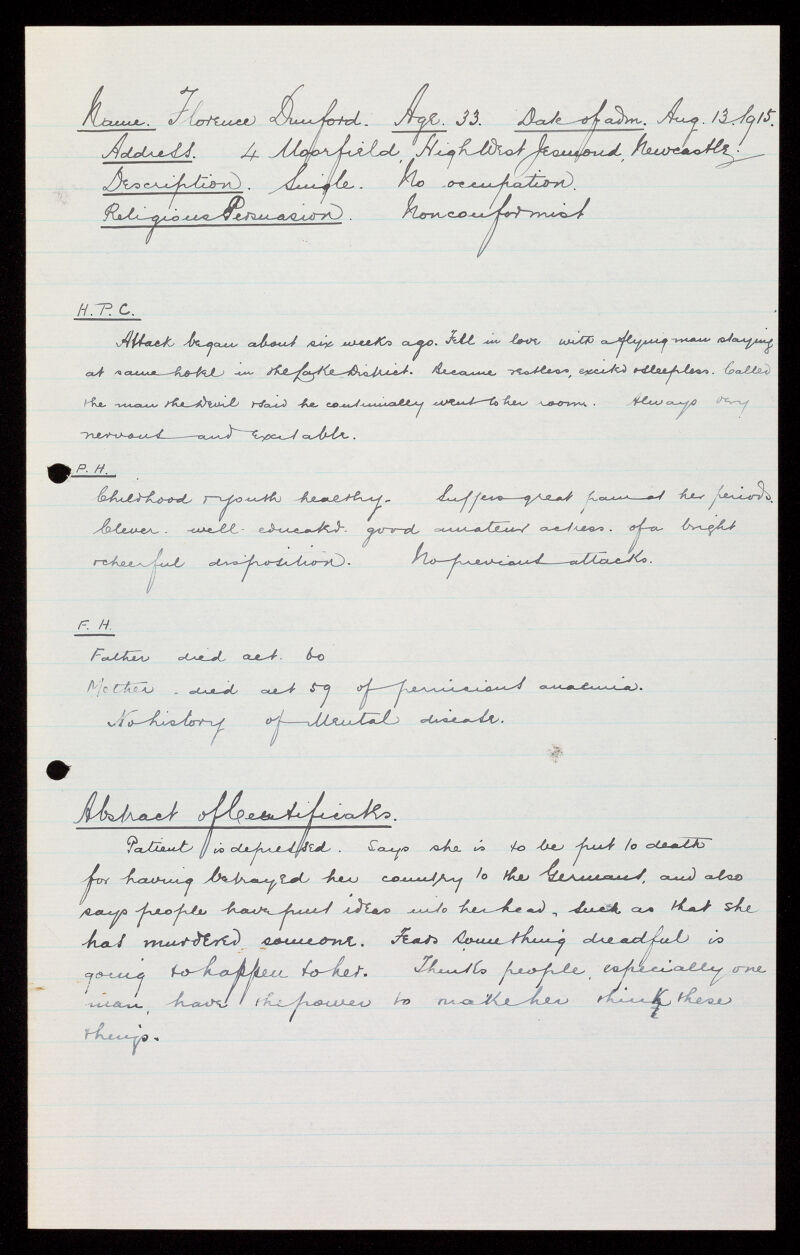 Name. Florence Dunford. Age. 33. Date of adm. Aug. 13. 1915.
Address. 4 Moorfield, High West Jesmond, Newcastle.
Description. Single. No occupation.
Religious Persuasion. Nonconformist
H. P. C.
Attack began about six weeks ago. Fell in love with a flying man staying
at same hotel in the Lake District. Became restless, excited & sleepless. Called
the man the Devil & said he continually went to her room. Always very
nervous and excitable.
P. H.
Childhood & youth healthy. Suffers great pain at her periods.
Clever. well educated. good amateur actress. of a bright
& cheerful disposition. No previous attacks.
F. H.
Father died aet. 60
Mother. died aet 59 of pernicious anaemia.
No history of Mental disease.
Abstract of Certificates.
Patient is depressed. Says she is to be put to death
for having betrayed her country to the Germans, and also
says people have put ideas into her head, such as that she
has murdered someone. Fears something dreadful is
going to happen to her. Thinks people, especially one
man, have the power to make her think these
things.